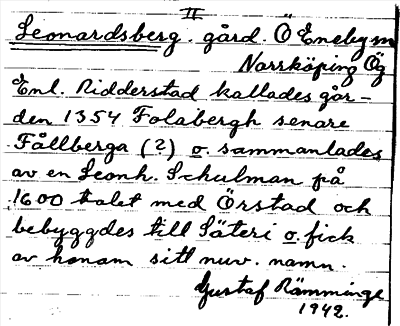 II
Leonardsberg. gård. Ö Eneby sn
Norrköping Ög
Enl. Ridderstad kallades går-
den 1354 Folabergh senare
Fållberga (?) o. sammanlades
av en Leonh. Schulman på
1600 talet med Örstad och
bebyggdes till Säteri o. fick
av honom sitt nuv. namn.
Gustaf Rämminge
1942.